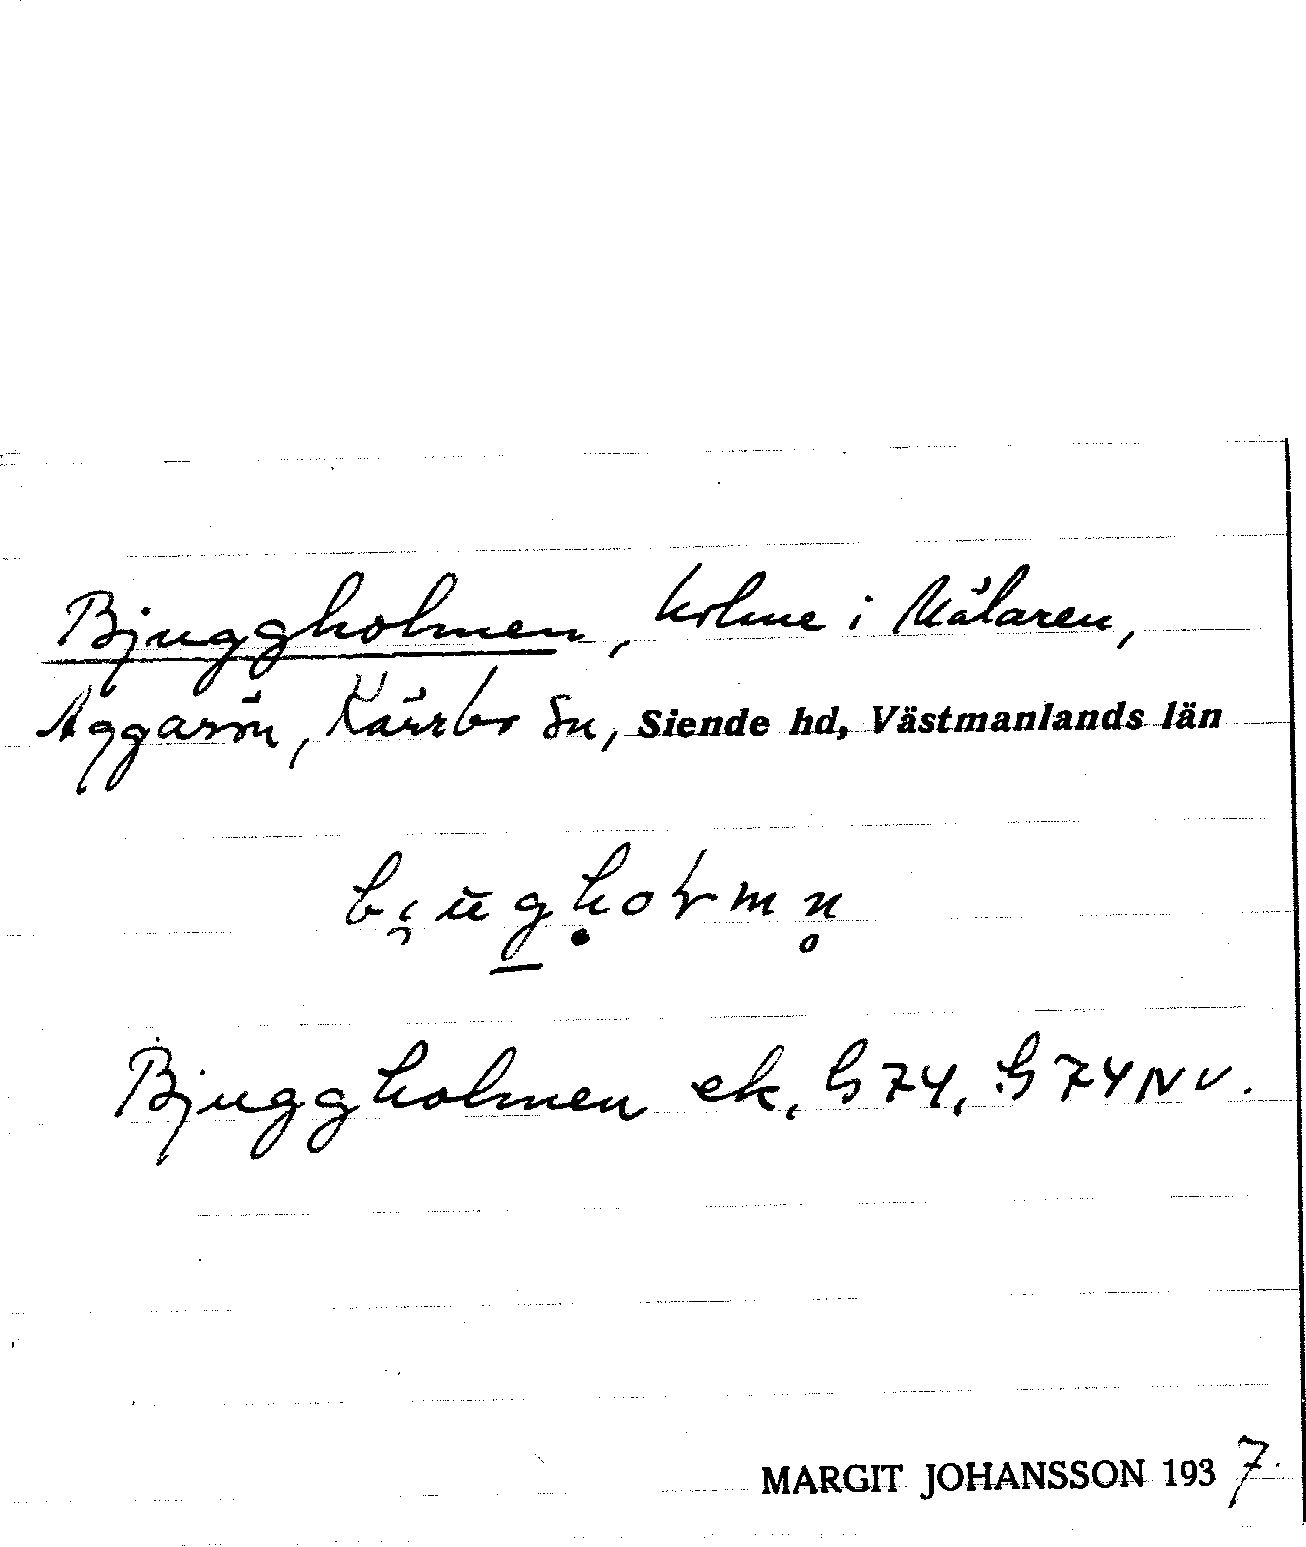 Bjuggholmen, holme i Mälaren,
Aggarön, Kärrbo sn, Siende hd, Västmanlands län
Bjuggholmen ek, G 74, G 74 NV.
MARGIT JOHANSSON 1937.